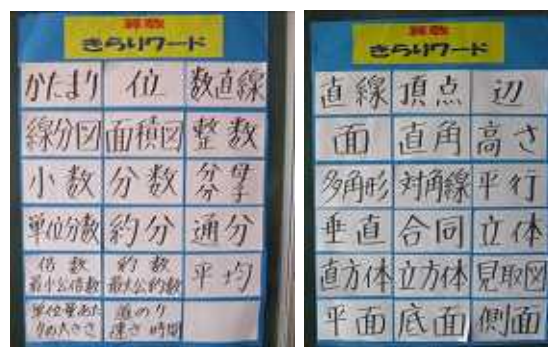 算数
きらりワード
かたまり 位 数直線
線分図 面積図 整数
小数 分数 分母 分子
単位分数 約分 通分
倍数 最小公倍数 約数 最大公約数 平均
単位量あたりの大きさ 道のり 速さ 時間
算数
きらりワード
直線 頂点 辺
面 直角 高さ
多角形 対角線 平行
垂直 合同 立体
直方体 立方体 見取図
平面 底面 側面